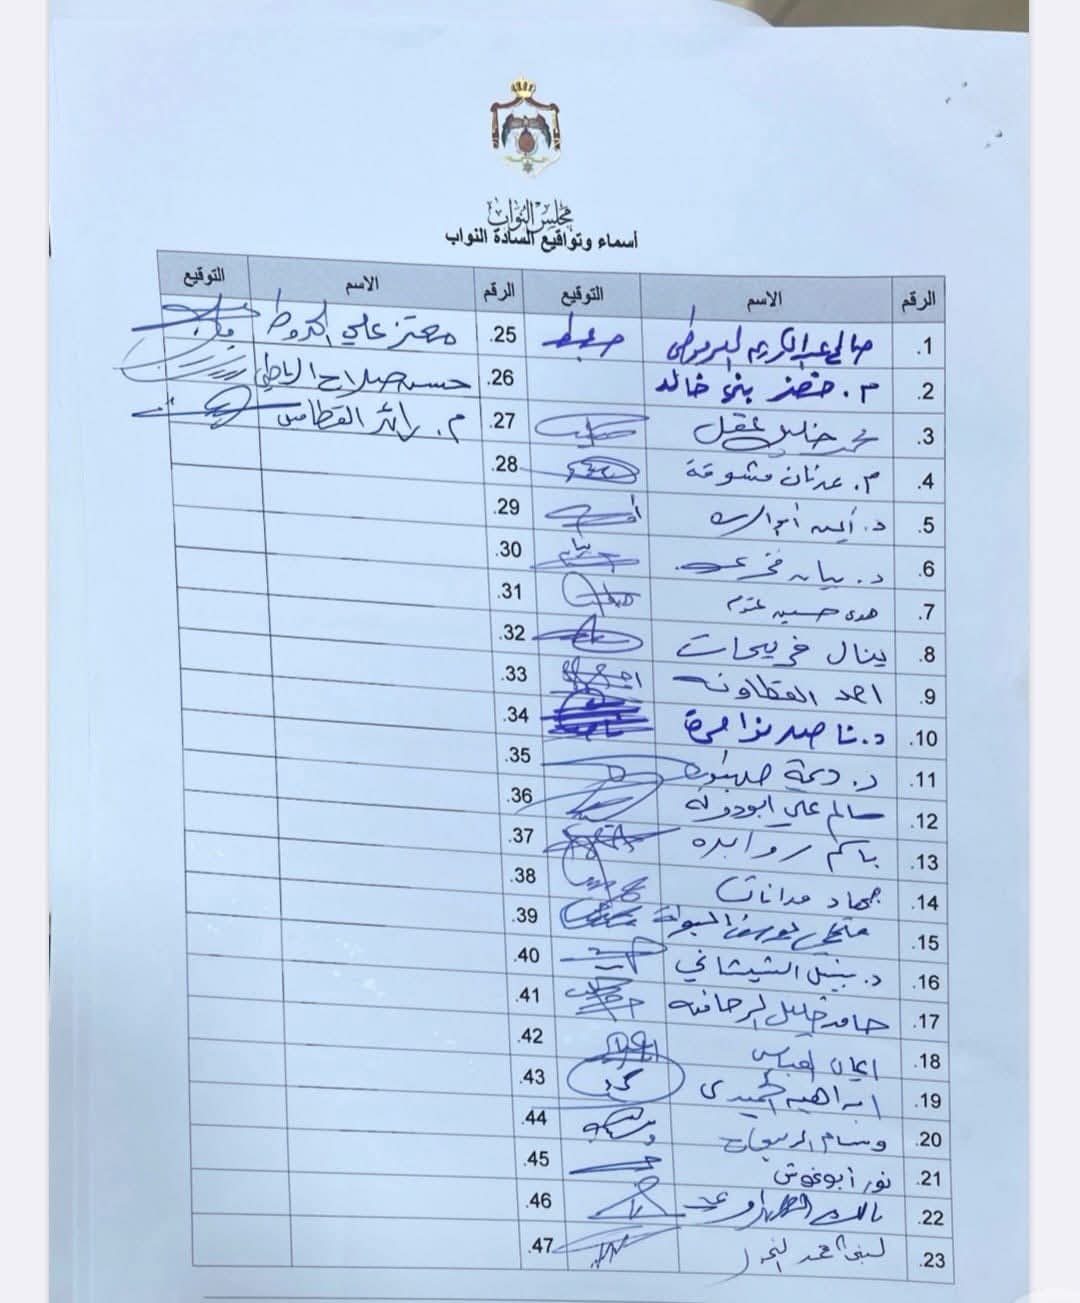 مجلس النواب
أسماء وتواقيع السادة النواب
الرقم الاسم التوقيع الرقم الاسم التوقيع
1. صالح عبدالكريم العرموطي 25. معتز علي
2. م. خضر بني خالد 26. حسن صلاح الرياطي
3. محمد خليل عقل 27. م. رائد القطامين
4. م. عدنان مشوقة 28.
5. د. أيمن 29.
6. د. بيان 30.
7. هدى حسين عتوم 31.
8. ينال فريحات 32.
9. احمد القطاونه 33.
10. د. ناصر نواصرة 34.
11. د. ديمة طهبوب 35.
12. سالم علي ابودوله 36.
13. باسم روابده 37.
14. جهاد مدانات 38.
15. يوسف 39.
16. د. نبيل الشيشاني 40.
17. حامد خليل الرحامنه 41.
18. ايمان العباسي 42.
19. ابراهيم الحميدي 43.
20. وسام الربيحات 44.
21. نور أبوغوش 45.
22. مالك 46.
23. لبنى محمد 47.